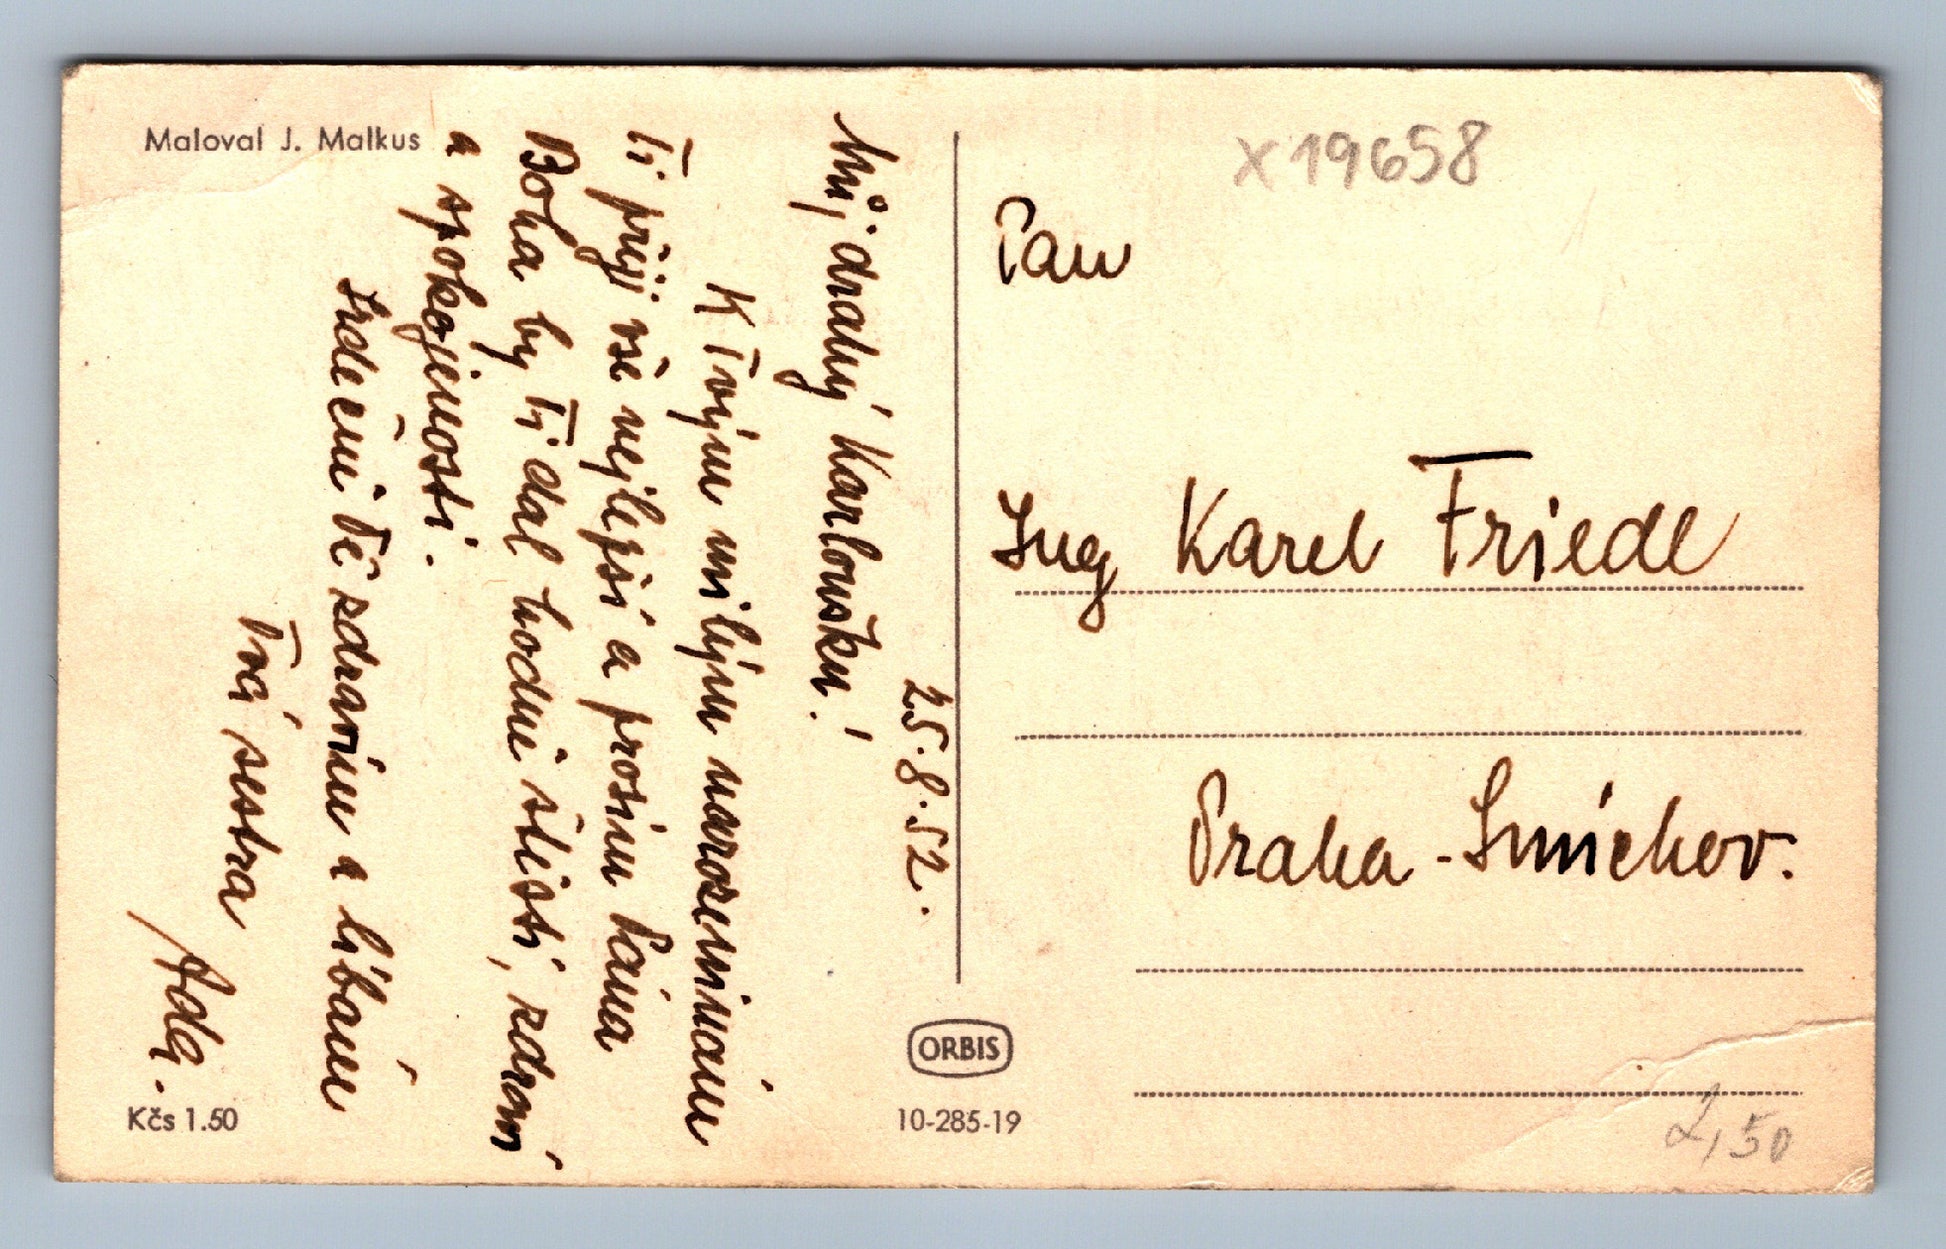 Maloval J. Malkus
25.8.52.
Můj drahý Karloušku!
K Tvým milým narozeninám
Ti přeji vše nejlepší a prosím Pána
Boha by Ti dal hodně štěstí, zdraví
a spokojenosti.
Srdečně Tě zdravím a líbám
Tvá sestra
Ada.
Kčs 1.50
ORBIS
10-285-19
x 19658
Pan
Ing Karel Friedl
Praha - Smíchov.
2,50